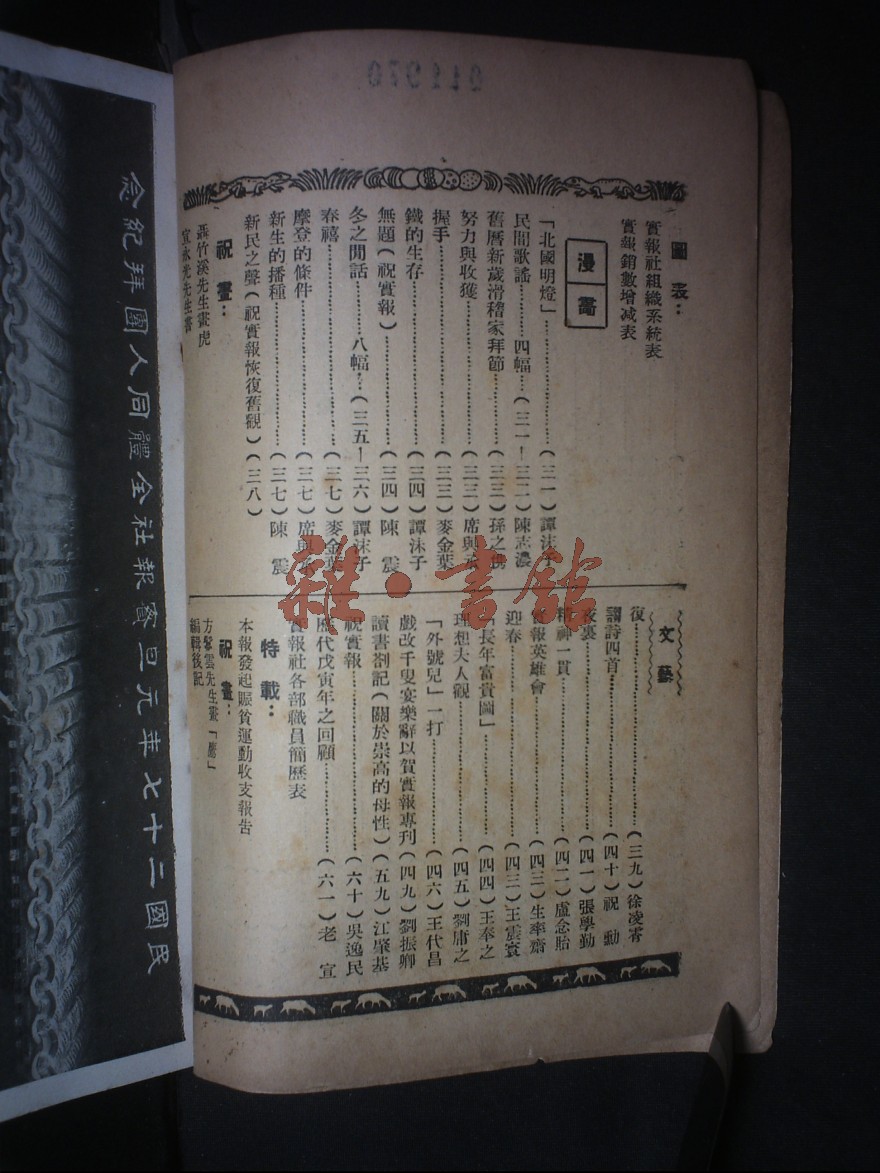 011970
圖表：
實報社組織系統表
實報銷數增減表
漫畫
「北國明燈」………（三一）譚沫子
民間歌謠………四幅…（三一—三二）陳志濃
舊曆新歲滑稽家拜節………（三三）孫之儁
努力與收獲………（三三）席與承
握手………（三三）麥金葉
鐵的生存………（三四）譚沫子
無題（祝實報）………（三四）陳　震
冬之閒話………八幅…（三五—三六）譚沫子
春禧………（三七）麥金葉
摩登的條件………（三七）席與承
新生的播種………（三七）陳　震
新民之聲（祝實報恢復舊觀）（三八）
祝畫：
聶竹溪先生畫虎
宣永光先生書
文藝
復………（三九）徐凌霄
謅詩四首………（四十）祝　勳
夜裏………（四一）張學勤
精神一貫………（四二）盧念貽
實報英雄會………（四三）生率齋
迎春………（四三）王震寰
「長年富貴圖」………（四四）王奉之
理想夫人觀………（四五）劉庸之
「外號兒」一打………（四六）王代昌
戲改千叟宴樂辭以賀實報專刊（四九）劉振卿
讀書劄記（關於崇高的母性）（五九）江肇基
祝實報………（六十）吳逸民
歷代戊寅年之回顧………（六一）老　宣
實報社各部職員簡歷表
特載：
本報發起賑貧運動收支報告
祝畫：
方紫雲先生畫「鷹」
編輯後記
民國二十七年元旦實報社全體同人團拜紀念
雜·書館